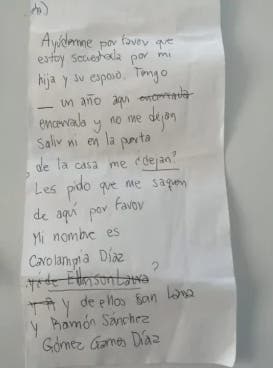 Ayúdenme por favor que
estoy secuestrada por mi
hija y su esposo. Tengo
— un año aquí encerrada
encerrada y no me dejan
salir ni en la puerta
de la casa me dejan?
Les pido que me saquen
de aquí por favor
Mi nombre es
Carolampia Díaz
?
y de ellos son Lana
y Ramón Sánchez
Gómez Games Díaz